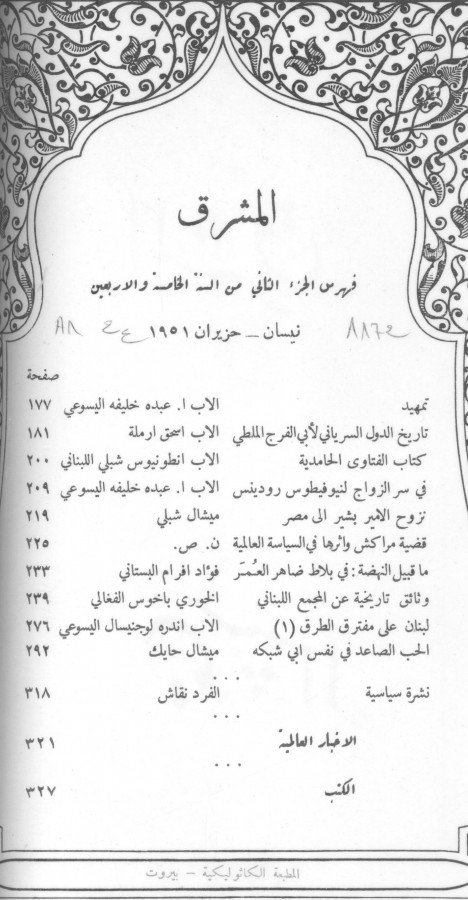 المشرق
فهرس الجزء الثاني من السنة الخامسة والاربعين
نيسان – حزيران ١٩٥١
صفحة
تمهيد الاب ا. عبده خليفه اليسوعي ١٧٧
تاريخ الدول السرياني لأبي الفرج الملطي الاب اسحق ارملة ١٨١
كتاب الفتاوى الحامدية الاب انطونيوس شبلي اللبناني ٢٠٠
في سر الزواج لنيوفيطوس رودينس الاب ا. عبده خليفه اليسوعي ٢٠٩
نزوح الامير بشير الى مصر ميشال شبلي ٢١٩
قضية مراكش واثرها في السياسة العالمية ن. ص. ٢٢٥
ما قبيل النهضة: في بلاط ضاهر العُمَر فؤاد افرام البستاني ٢٣٣
وثائق تاريخية عن المجمع اللبناني الخوري باخوس الفغالي ٢٣٩
لبنان على مفترق الطرق (١) الاب اندره لوجنيسال اليسوعي ٢٧٦
الحب الصاعد في نفس ابي شبكه ميشال حايك ٢٩٢
...
نشرة سياسية الفرد نقاش ٣١٨
...
الاخبار العالمية ٣٢١
...
الكتب ٣٢٧
المطبعة الكاثوليكية – بيروت